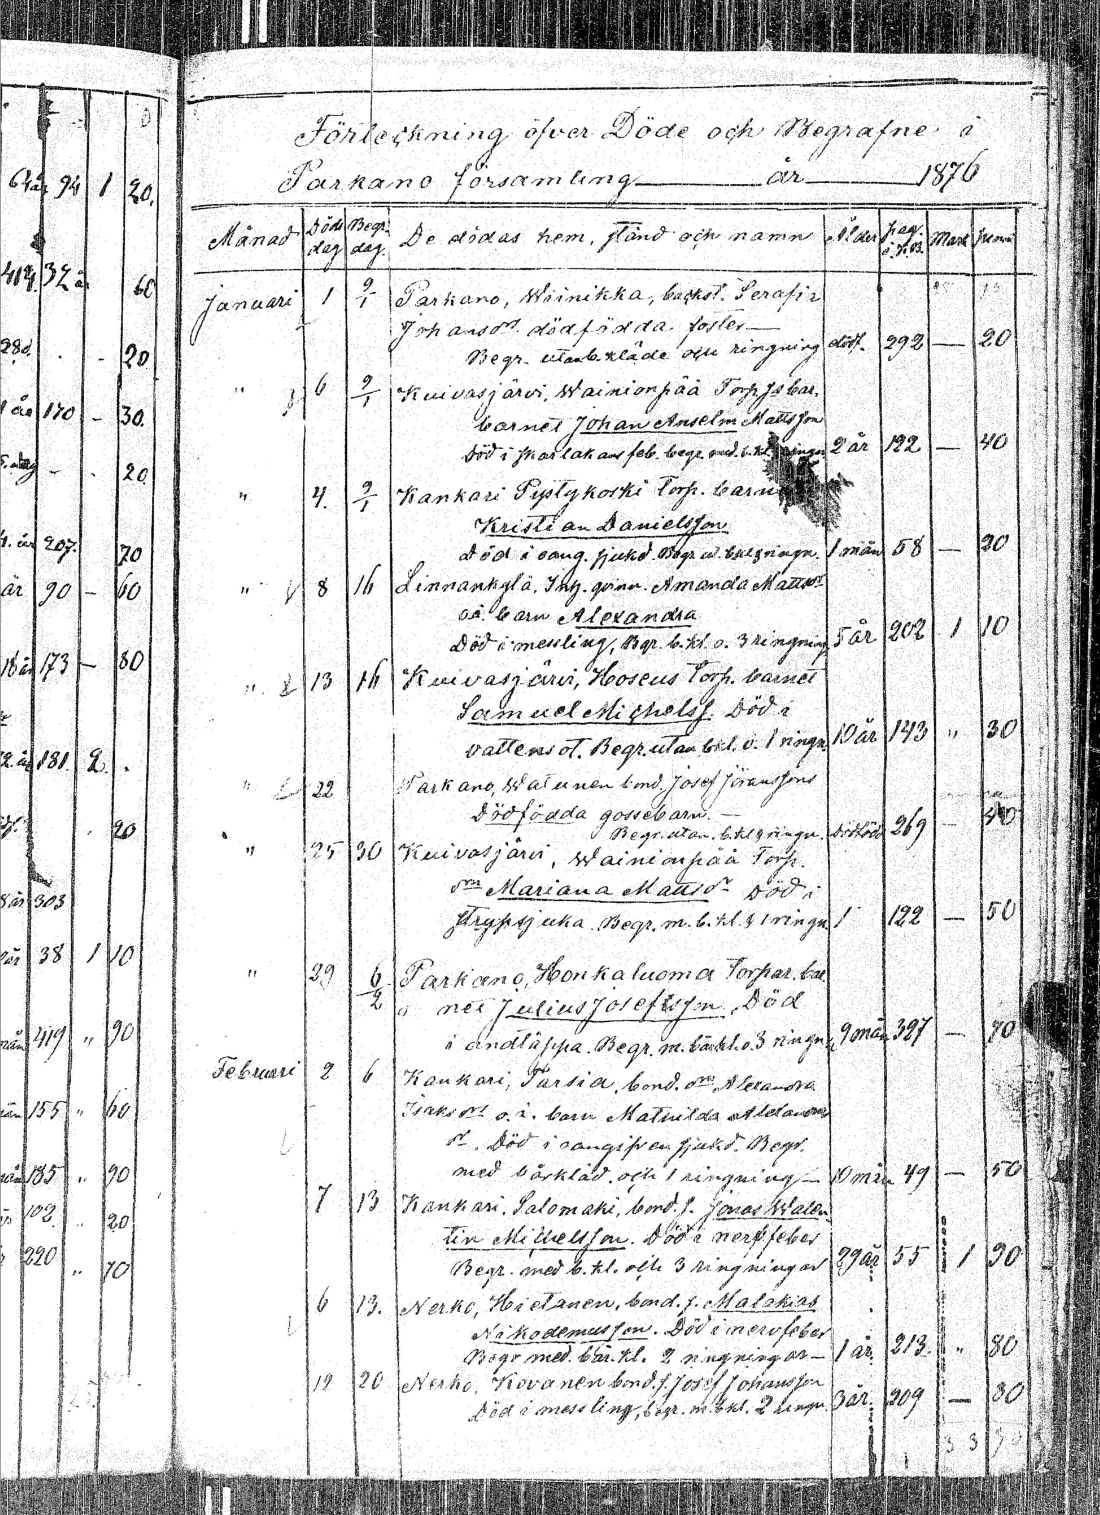 64 år 94 1 20.
414. 32 år 60
280. . - 20
1 år 170 - 30.
5. dag - - 20
4. år 207. 70
år 90 - 60
18 år 173 - 80
2. år 181. 2. .
20
8 år 303
år 38 1 10
mån 419 " 90
mån 155 " 60
mån 185 " 90
102. " 20
220 " 70
Förteckning öfver Döde och Begrafne i
Parkano församling år 1876
Månad Döds dag Begr. dag. De dödas hem, stånd och namn Ålder pag. i. K.B. Mark penni
Januari 1 9/1 Parkano, Wiinikka, backst. Serafia
Johansdr. dödfödda foster —
Begr. utan b. kläde och ringning dödf. 292 — 20
" 6 9/1 Kuivasjärvi, Wainionpää Torp. bar.
barnet Johan Anselm Mattsson
Död i skarlakansfeb. begr. med. b. kl. ringn 2 år 122 — 40
" 4. 9/1 Kankari Pystykoski Torp. barn
Kristian Danielsson
Död i oang. sjukd. Begr. u. b.kl & ringn. 1 mån 58 — 20
" 8 16 Linnankylä, Inh. qvinn. Amanda Mattsdr
oä. barn Alexandra
Död i messling, Bgr. b. kl. o. 3 ringning 5 år 202 1 10
" 13 16 Kuivasjärvi, Hoseus Torp. barnet
Samuel Michelss. Död i
vattensot. Begr. utan b.kl. o. 1 ringn. 10 år 143 " 30
" 22 Parkano, Watunen bond. Josef Göranssons
Dödfödda gossebarn. —
Begr. utan. b. kl & ringn. dödföd 269 — 40
" 25 30 Kuivasjärvi, Wainionpää Torp.
Mariana Mattsdr Död i
strypsjuka. Begr. m. b. kl. & 1 ringn. 1 122 — 50
" 29 6/2 Parkano, Honkaluoma Torpar. bar
net Julius Josefsson, Död
i andtäppa. Begr. m. bårkl. o. 3 ringn. 9 mån 327 — 70
Februari 2 6 Kankari, Parsia, bond. Alexandra
Isaksdr o. ä. barn Mathilda Alexanders
dr. Död i oangifven sjukd. Begr.
med bårkläd. och 1 ringning — 10 mån 49 — 50
7 13 Kankari, Salomaki, bond. s. Jonas Walen
tin Michelsson. Död i nervfeber
Begr. med b. kl. och 3 ringningar 29 år 55 1 90
6 13. Nerko, Hietanen, bond. s. Malakias
Nikodemusson. Död i nervfeber
Begr med. bår. kl. 2 ringningar — 1 år. 213. " 80
12 20 Nerko, Kovanen bond. s. Josef Johansson
Död i messling, begr. m. b.kl. 2 ringn. 3 år. 209 — 80